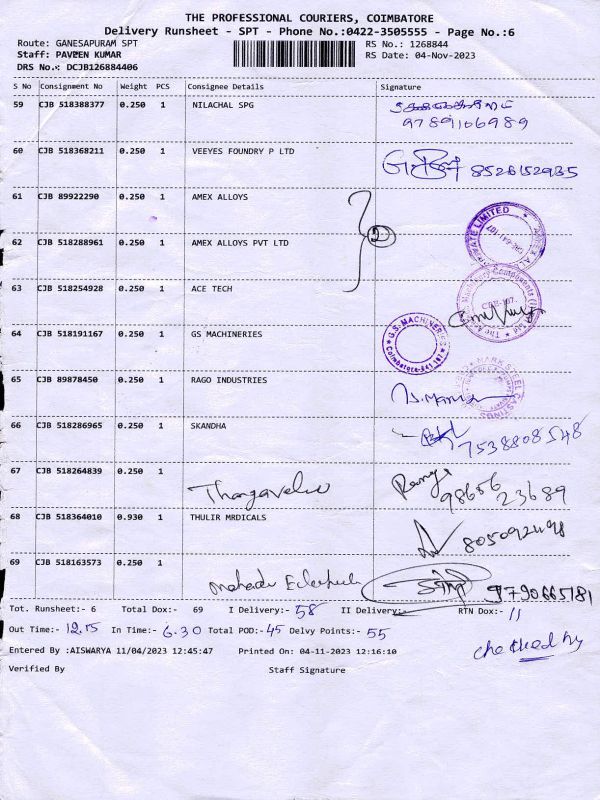 THE PROFESSIONAL COURIERS, COIMBATORE
Delivery Runsheet - SPT - Phone No.:0422-3505555 - Page No.:6
Route: GANESAPURAM SPT RS No.: 1268844
Staff: PAVEEN KUMAR RS Date: 04-Nov-2023
DRS No.: DCJB126884406
S No Consignment No Weight PCS Consignee Details Signature
59 CJB 518388377 0.250 1 NILACHAL SPG
9789106989
60 CJB 518368211 0.250 1 VEEYES FOUNDRY P LTD 8526152935
61 CJB 89922290 0.250 1 AMEX ALLOYS
62 CJB 518288961 0.250 1 AMEX ALLOYS PVT LTD
63 CJB 518254928 0.250 1 ACE TECH
64 CJB 518191167 0.250 1 GS MACHINERIES G.S. MACHINERIES Coimbatore-641 107
65 CJB 89878450 0.250 1 RAGO INDUSTRIES MARK STEEL CASTINGS
66 CJB 518286965 0.250 1 SKANDHA 7538808548
67 CJB 518264839 0.250 1 Thangavelu 98656 23689
68 CJB 518364010 0.930 1 THULIR MRDICALS
69 CJB 518163573 0.250 1 9790665181
Tot. Runsheet:- 6 Total Dox:- 69 I Delivery:- 58 II Delivery:- RTN Dox:- 11
Out Time:- 12.15 In Time:- 6.30 Total POD:- 45 Delvy Points:- 55
checked by
Entered By :AISWARYA 11/04/2023 12:45:47 Printed On: 04-11-2023 12:16:10
Verified By Staff Signature